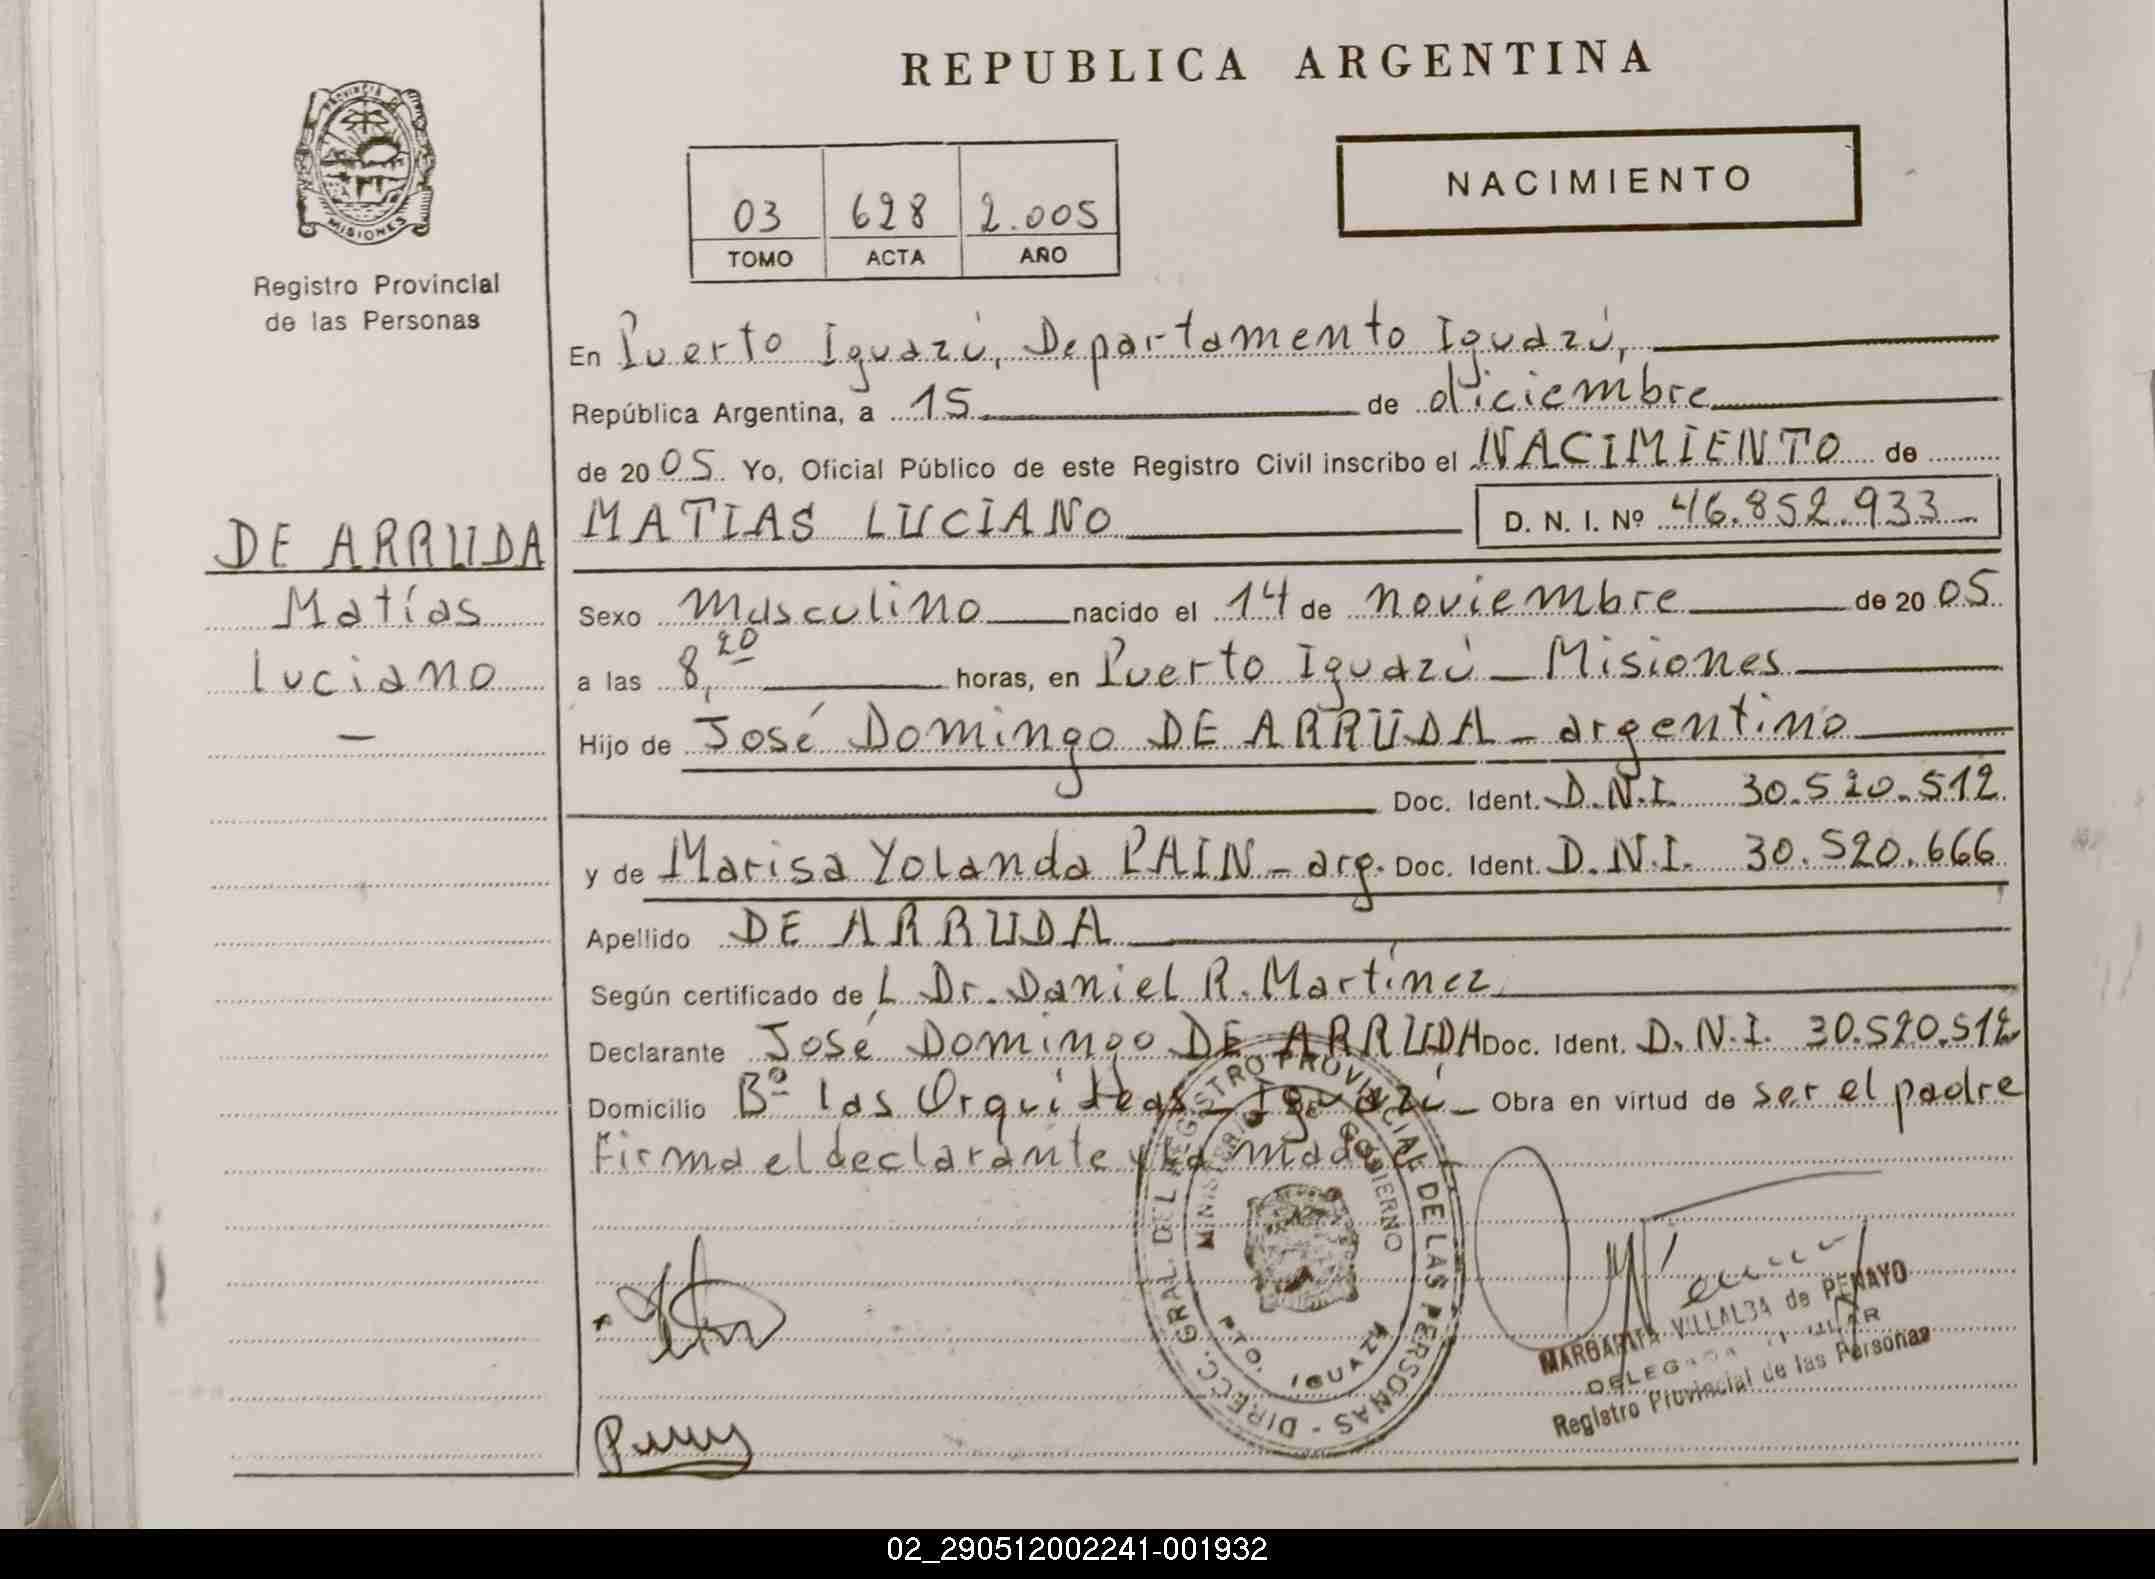 REPUBLICA ARGENTINA
PROVINCIA DE
MISIONES
Registro Provincial
de las Personas
03 628 2.005
TOMO ACTA AÑO
NACIMIENTO
En Puerto Iguazú, Departamento Iguazú,
República Argentina, a 15 de diciembre
de 20 05. Yo, Oficial Público de este Registro Civil inscribo el NACIMIENTO de
MATIAS LUCIANO D. N. I. Nº 46.852.933
DE ARRUDA
Matías
Luciano
Sexo masculino nacido el 14 de noviembre de 20 05
a las 8,20 horas, en Puerto Iguazú - Misiones
Hijo de José Domingo DE ARRUDA - argentino
Doc. Ident. D.N.I. 30.520.512
y de Marisa Yolanda PAIN - arg. Doc. Ident. D.N.I. 30.520.666
Apellido DE ARRUDA
Según certificado de L Dr. Daniel R. Martínez
Declarante José Domingo DE ARRUDA Doc. Ident. D.N.I. 30.520.512
Domicilio Bº las Orquídeas - Iguazú - Obra en virtud de ser el padre
Firma el declarante y la madre
DIRECC. GRAL DEL REGISTRO PROVINCIAL DE LAS PERSONAS -
MINISTERIO DE GOBIERNO
PTO. IGUAZU
MARGARITA VILLALBA de PENAYO
DELEGADA TITULAR
Registro Provincial de las Personas
02_290512002241-001932